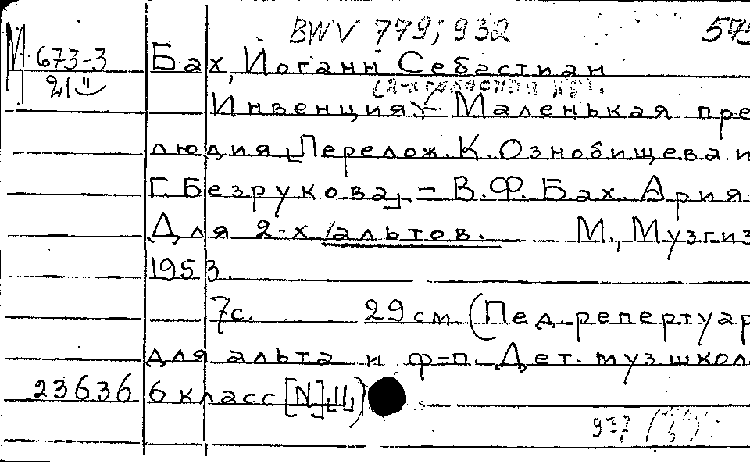 BWV 779; 932
М 673-3 Бах, Иоганн Себастиан
21
Инвенция Маленькая пре
людия [Перелож. К. Ознобищева и
Г. Безрукова] – В.Ф. Бах. Ария
Для 2-х альтов. М., Музгиз
1953.
7с. 29 см (Пед. репертуар
для альта и ф-п. Дет. муз. школ
23636 6 класс